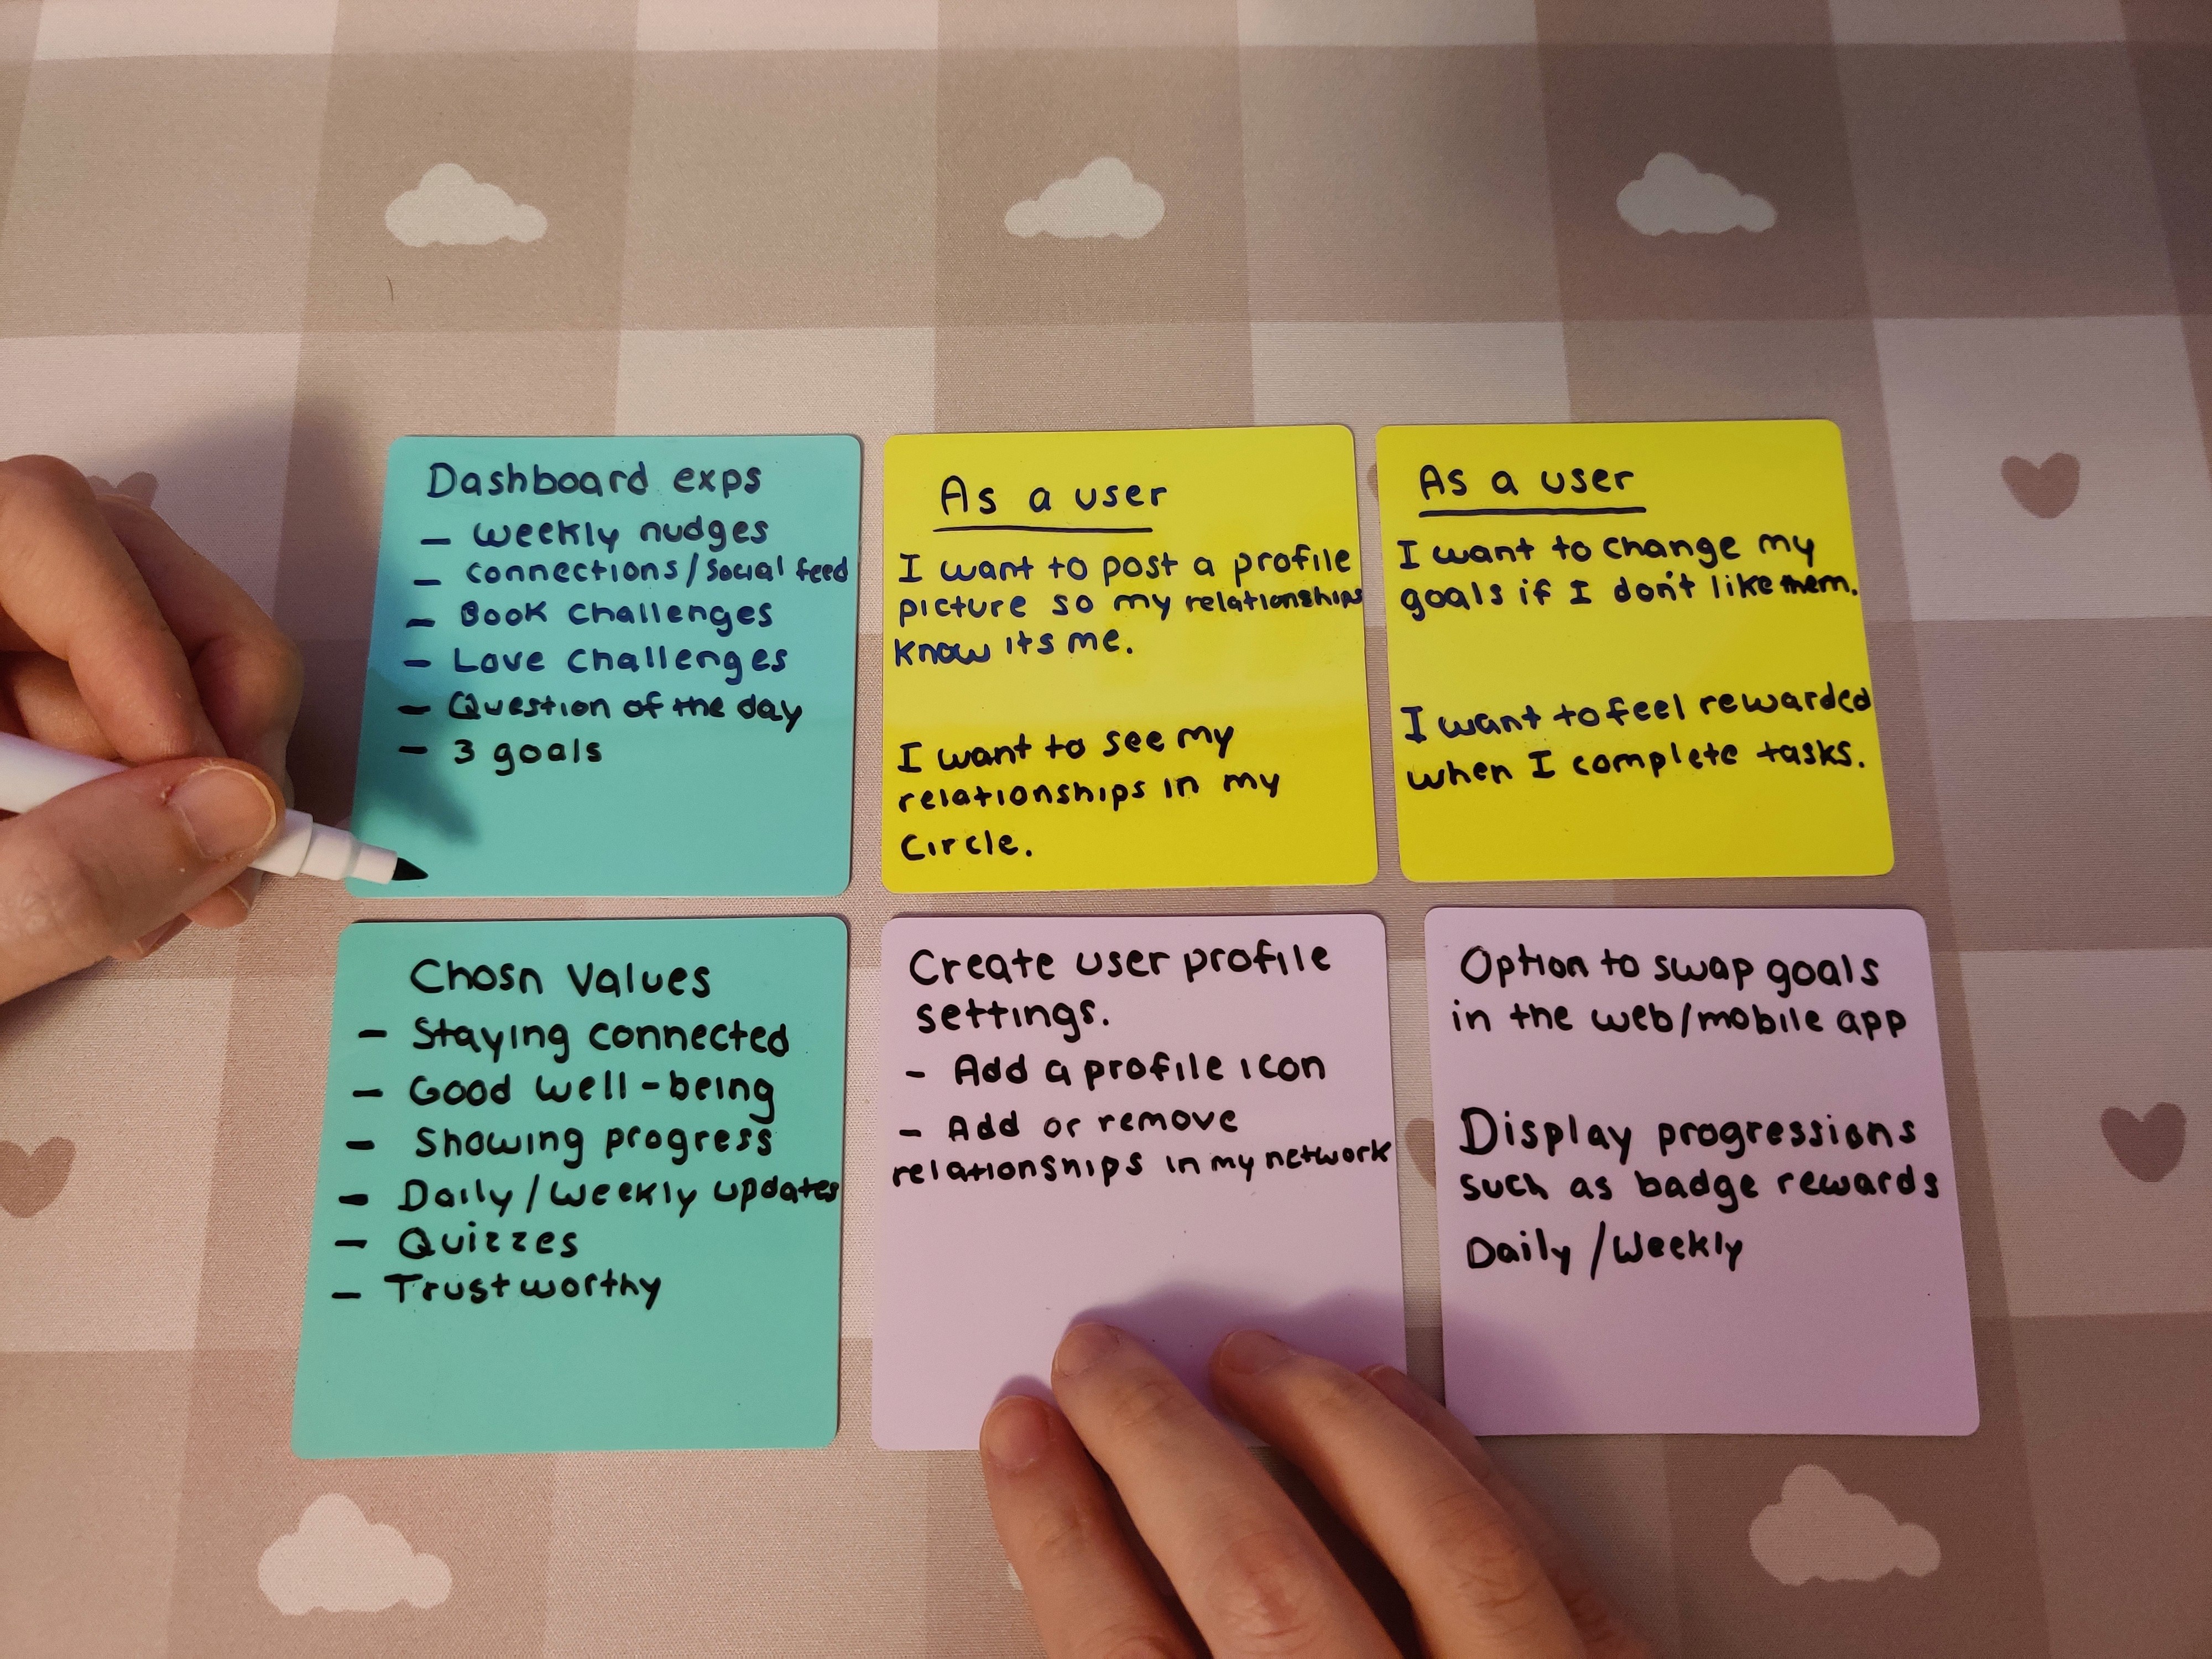 Dashboard exps
- weekly nudges
- connections/social feed
- Book challenges
- Love challenges
- Question of the day
- 3 goals
As a user
I want to post a profile
picture so my relationships
know its me.
I want to see my
relationships in my
circle.
As a user
I want to change my
goals if I don't like them.
I want to feel rewarded
when I complete tasks.
Chosn Values
- Staying connected
- Good well-being
- Showing progress
- Daily/weekly updates
- Quizzes
- Trustworthy
Create user profile
settings.
- Add a profile icon
- Add or remove
relationships in my network
Option to swap goals
in the web/mobile app
Display progressions
such as badge rewards
Daily/Weekly